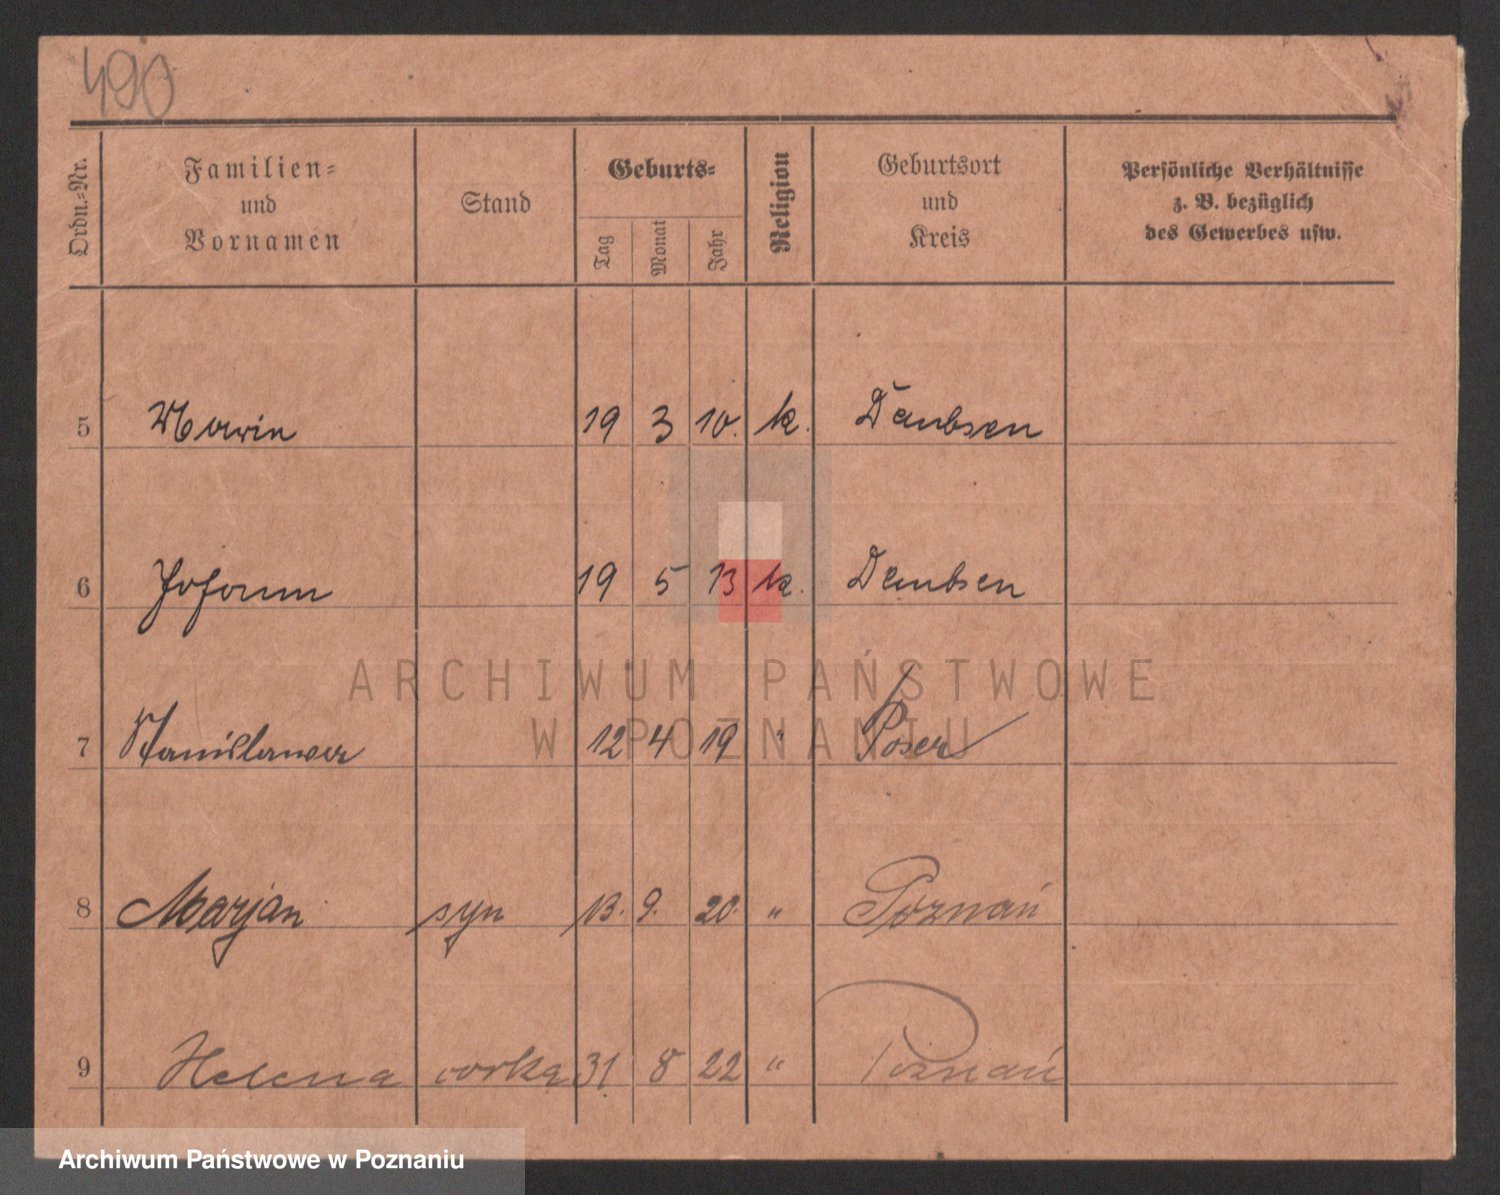 490
Ordn.-Nr.
Familien-
und
Vornamen
Stand
Geburts-
Tag
Monat
Jahr
Religion
Geburtsort
und
Kreis
Persönliche Verhältnisse
z. B. bezüglich
des Gewerbes usw.
5 19 3 10. k. Dembsen
6 Johann 19 5 13 k. Dembsen
7 Stanislawa 12 4 19 " Posen
8 Marjan syn 13. 9. 20. " Poznań
9 Helena corka 31 8 22 " Poznań
ARCHIWUM PAŃSTWOWE
W POZNANIU
Archiwum Państwowe w Poznaniu